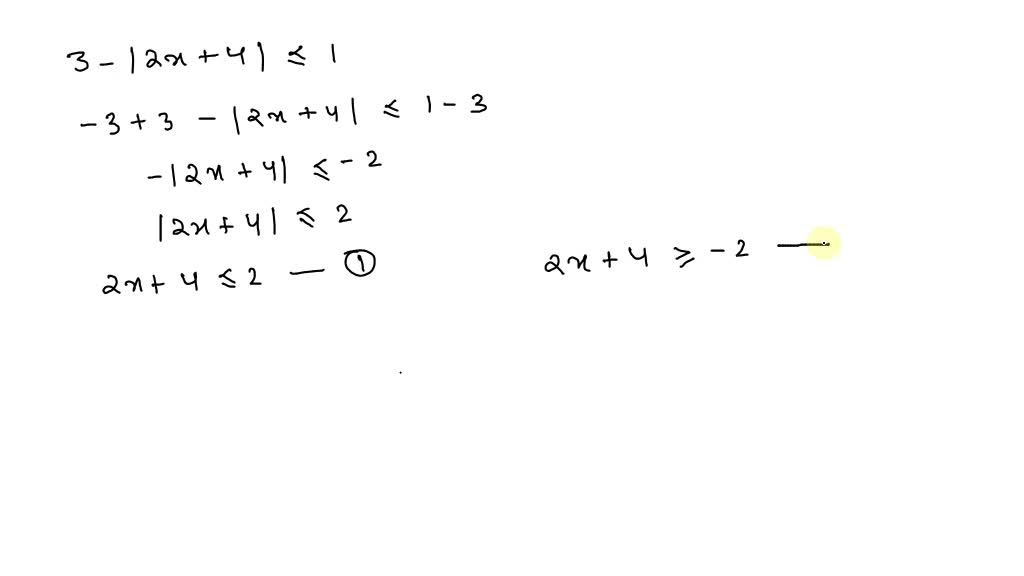 3 - |2x + 4| ≤ 1
-3 + 3 - |2x + 4| ≤ 1 - 3
-|2x + 4| ≤ -2
|2x + 4| ≤ 2
2x + 4 ≤ 2 — ①
2x + 4 ≥ -2 —